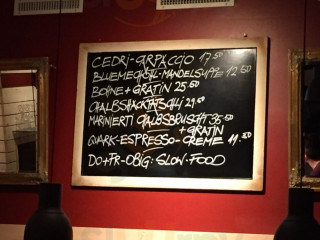 CEDRI-CARPACCIO 17.50
BLUEMECHÖHL-MANDELSUPPE 12.50
BOHNE+GRATIN 25.50
CHALBSHACKTÄTSCHLI 29.50
MARINIERTI CHALBSBRUSCHT 35.50
+ GRATIN
QUARK-ESPRESSO-CREME 11.50
DO+FR-OBIG: SLOW-FOOD